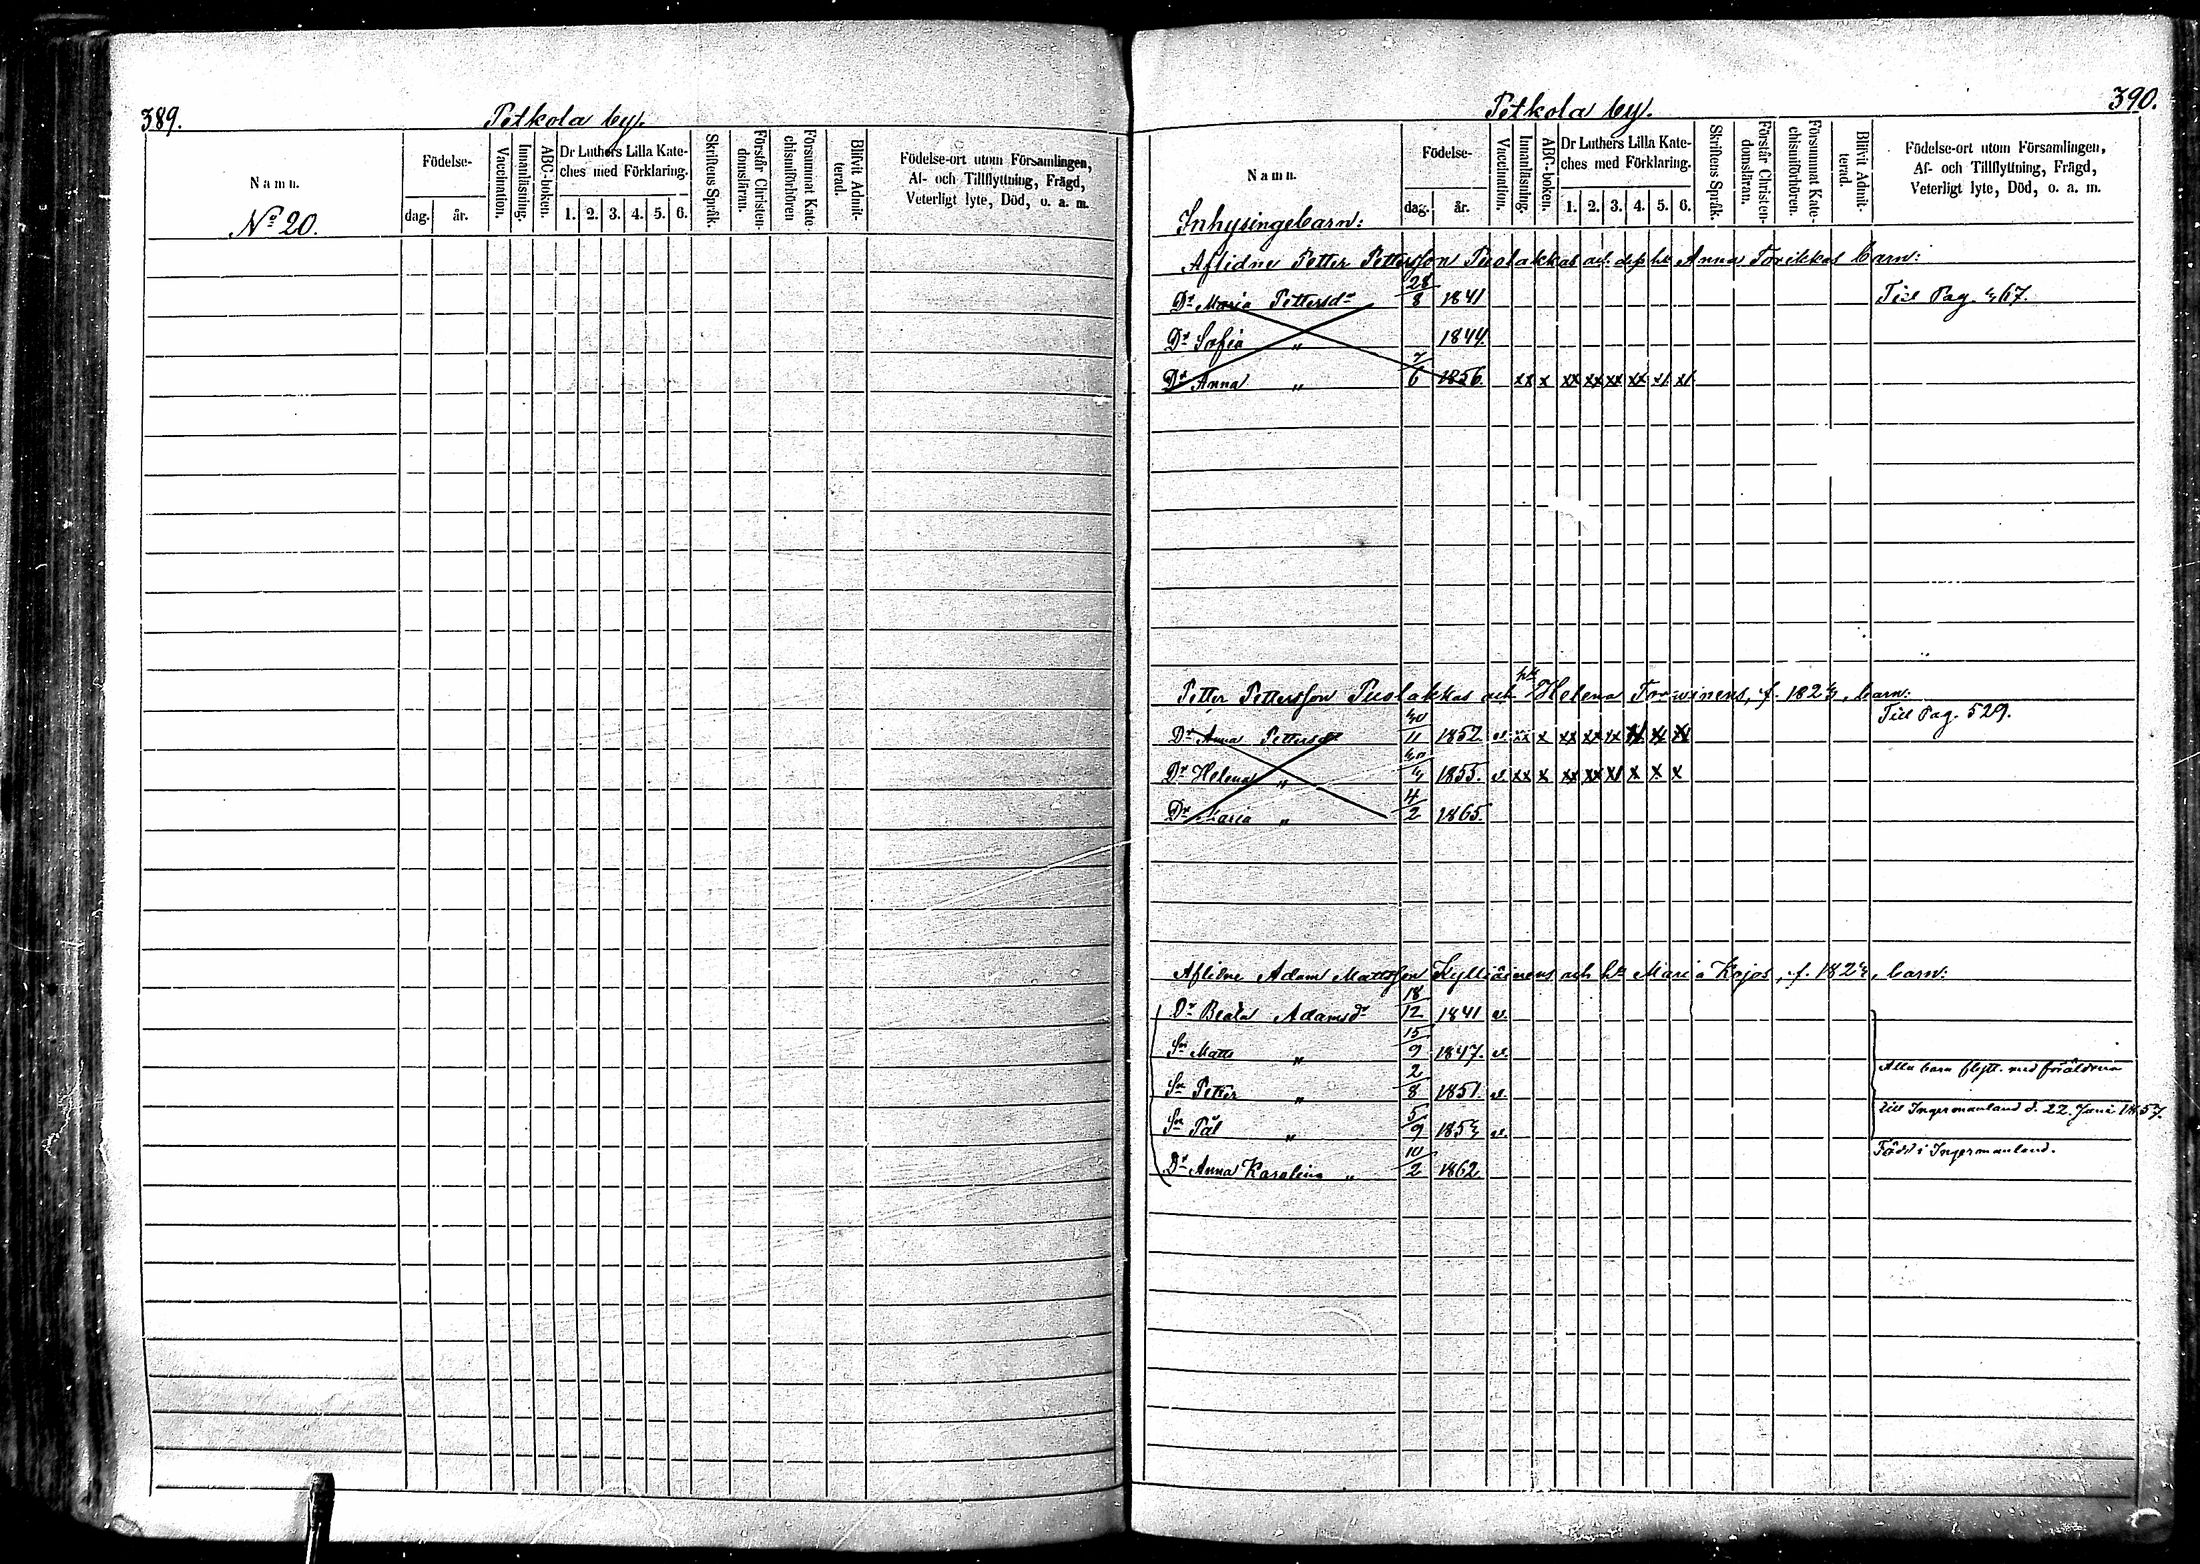 389.
Petkola by.
Namn.
Födelse-
dag. år.
Vaccination.
Innanläsning.
ABC-boken.
Dr Luthers Lilla Kate-
ches med Förklaring.
1. 2. 3. 4. 5. 6.
Skriftens Språk.
Förstår Christen-
domsläran.
Försummat Kate-
chismiförhören
Blifvit Admit-
terad.
Födelse-ort utom Församlingen,
Af- och Tillflyttning, Frägd,
Veterligt lyte, Död, o. a. m.
No 20.
390.
Petkola by.
Namn.
Födelse-
dag. år.
Vaccination.
Innanläsning.
ABC-boken.
Dr Luthers Lilla Kate-
ches med Förklaring.
1. 2. 3. 4. 5. 6.
Skriftens Språk.
Förstår Christen-
domsläran.
Försummat Kate-
chismiförhören.
Blifvit Admit-
terad.
Födelse-ort utom Församlingen,
Af- och Tillflyttning, Frägd,
Veterligt lyte, Död, o. a. m.
Inhysingebarn:
Aflidne Petter Pettersson Puolakkas och Anna Torikkas barn:
Dr Maria Pettersdr 28/8 1841 Till Pag. 467.
Dr Sofia " 1844.
Dr Anna " 7/6 1856. xx x xx xx xx xx x x
Petter Pettersson Puolakkas och Helena f. 1824, barn:
Till Pag. 529.
Dr Anna Pettersdr 11 1852 v. xx x xx xx xx x x x
Dr Helena " 1855. v. xx x xx xx x x x x
Dr Maria " 4/2 1865.
Aflidne Adam Mattsson Kylliäinens och Maria Kojos, f. 1824, barn:
Dr Beata Adamsdr 18/12 1841 v.
Sn Matts " 15/9 1847. v.
Sn Petter " 2/8 1851. v.
Sn Pål " 5/9 1854 v.
Alla barn flytt. med föräldrarna
till Ingermanland d. 22. Juni 1857.
Dr Anna Karolina " 10/2 1862. Född i Ingermanland.